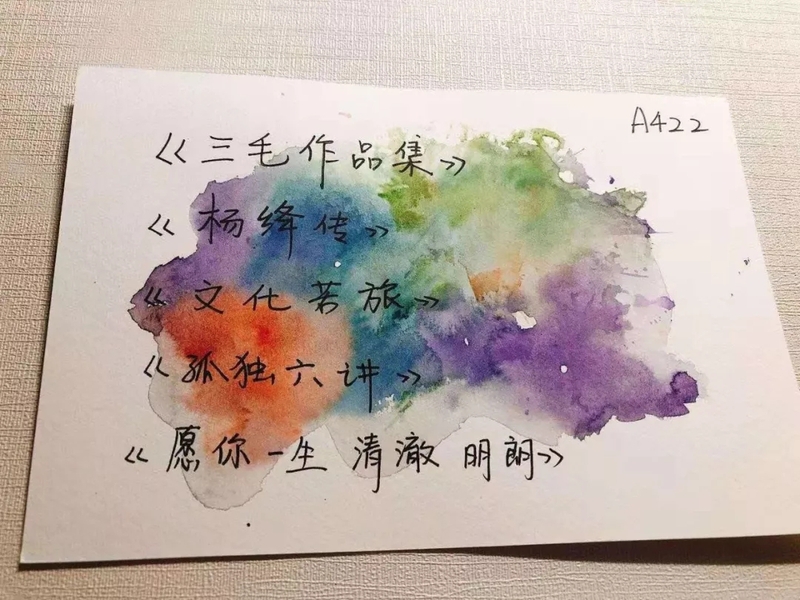 A422
《三毛作品集》
《杨绛传》
《文化苦旅》
《孤独六讲》
《愿你一生 清澈明朗》